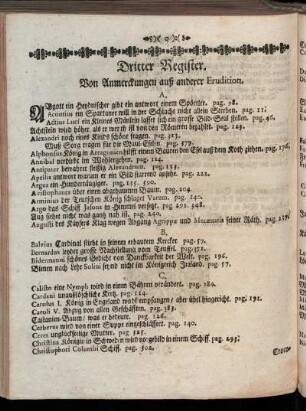 Dritter Register.
Von Anmerckungen auß anderer Erudition.
A.
Abgott ein Heydnischer gibt ein antwort einem Soderiter. pag. 98.
Acontius ein Spartaner will in der Schlacht nicht allein sterben. pag. 11;
Actius Luci ein kleines Männlein lasset sich ein grosse Bild-Seul stellen. pag. 46.
Achtstein wird höher als er werth ist von den Römern bezahlt. pag. 149.
Alexandri noch eines Kinds schöne fragen. pag. 313.
Muß Sorg tragen für die Maul-Eseln pag. 577.
Alphonsus König in Arragonien hilfft einem Bauren den Esel auß dem Koth ziehen. pag. 176.
Annibal verdirbt in Wohlergehen. pag. 124.
Antipater beredet fälschig Alexandrum. pag. 159.
Apelles antwort warum er ein Bild sitzend mahle. pag. 121.
Argus ein Hunderäugiger. pag. 115. 590.
Aristophanes über einen überhawenen Baum. pag. 104.
Arminius der Teutschen König schlaget Varum. pag. 140.
Argo das Schiff Jasons in Himmel versetzt. pag. 291. 548.
Aug siehe nicht was gantz nah ist. pag. 240.
Augusti des Kaysers Klag wegen Abgang Agrippæ und Mœcenatis seiner Räth. pag. 257.
B.
Balvius Cardinal stirbt in seinem erbauten Kercker. pag. 59.
Bernardus leydet grosse Nachstellung vom Teuffel. pag. 572.
Bidermanni schönes Gedicht von Danckbarkeit der Welt. pag. 196.
Bienen nach Lehr Solini seynd nicht im Königreich Irrland. pag. 57.
C.
Calisto eine Nymph wird in einen Bähren verändert. pag. 180.
Cardani unaußlöschliche Kertz. pag. 124.
Carolus I. König in Engeland wird empfangen / aber übel hingericht. pag. 191.
Caroli V. Abzug von allen Geschäfften. pag. 383.
Castanien-Baum / was er bedeute. pag. 226.
Cerberus wird von einer Suppe eingeschläffert. pag. 140.
Ceres unglückseelige Mutter. pag. 325.
Christina Königin in Schweden wird vorgebild in einem Schiff. pag. 295;
Christophori Columbi Schiff. pag. 302.